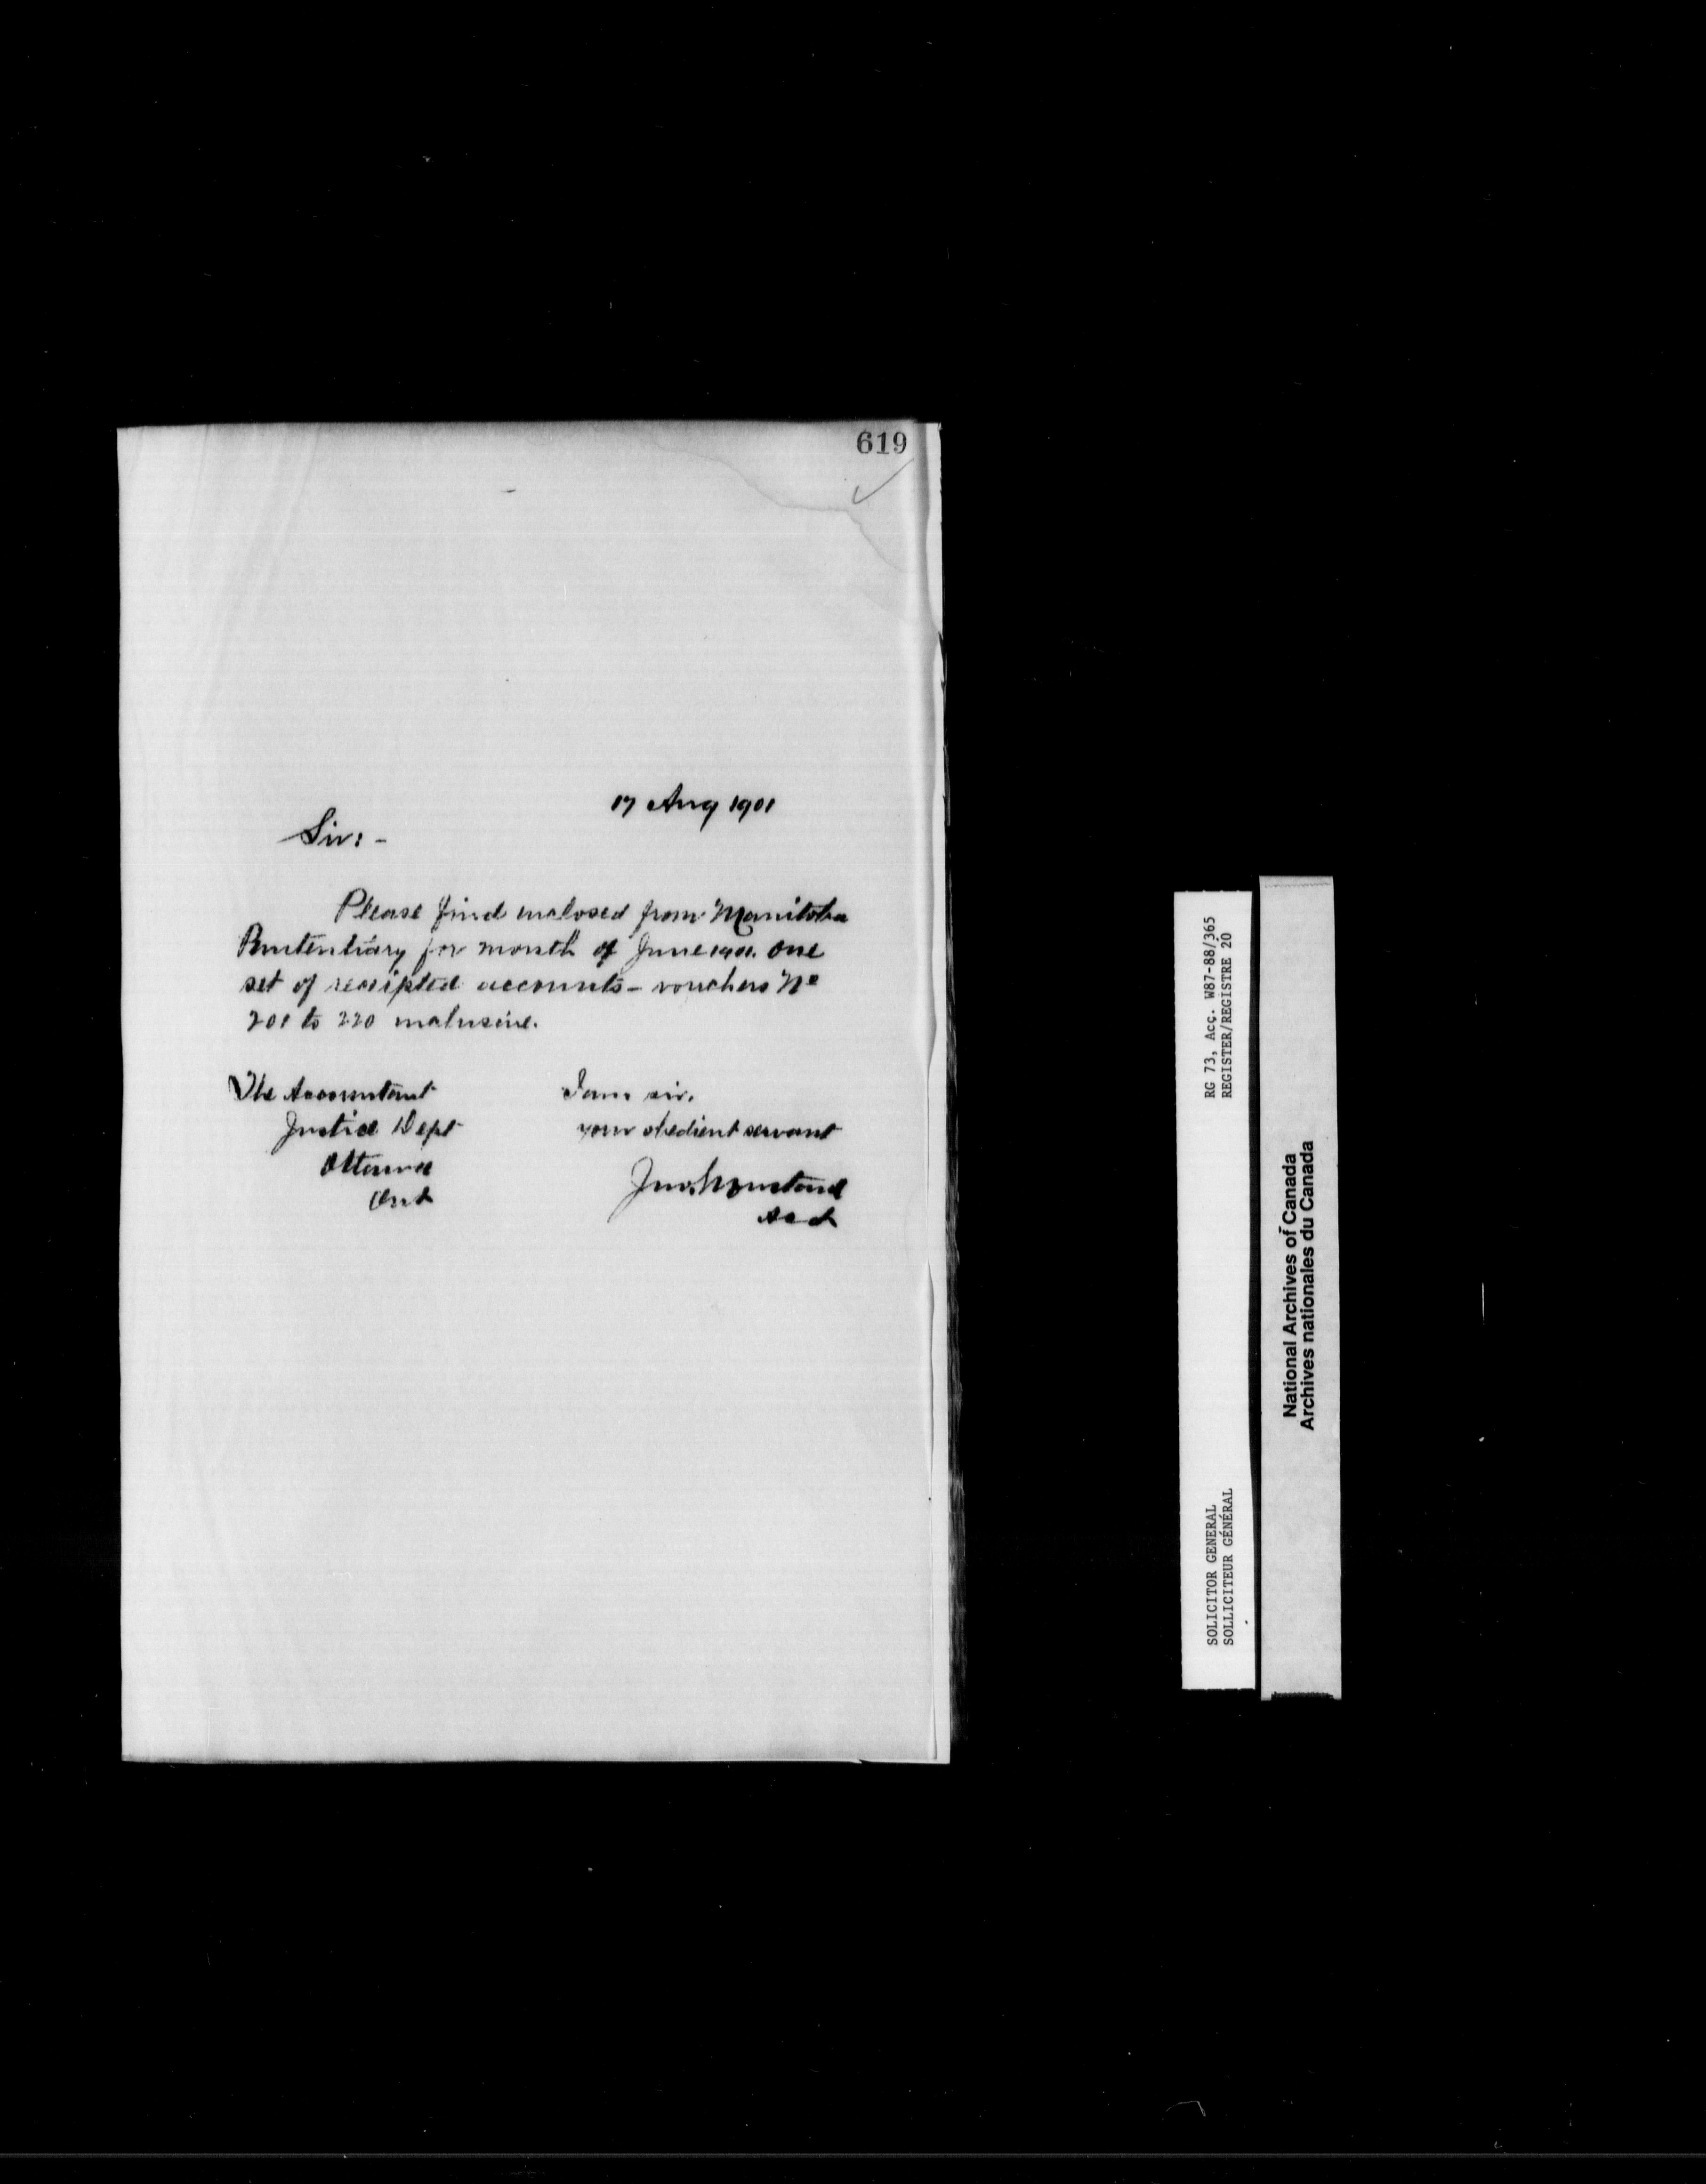 619
17 Aug 1901
Sir: -
Please find enclosed from Manitoba
Penitentiary for month of June 1901. one
set of receipted accounts - vouchers No
201 to 220 inclusive.
The Accountant
Justice Dept
Ottawa
Ont
I am sir.
your obedient servant
Jno.
Act
RG 73, Acc. W87-88/365
REGISTER/REGISTRE 20
SOLICITOR GENERAL
SOLLICITEUR GÉNÉRAL
National Archives of Canada
Archives nationales du Canada